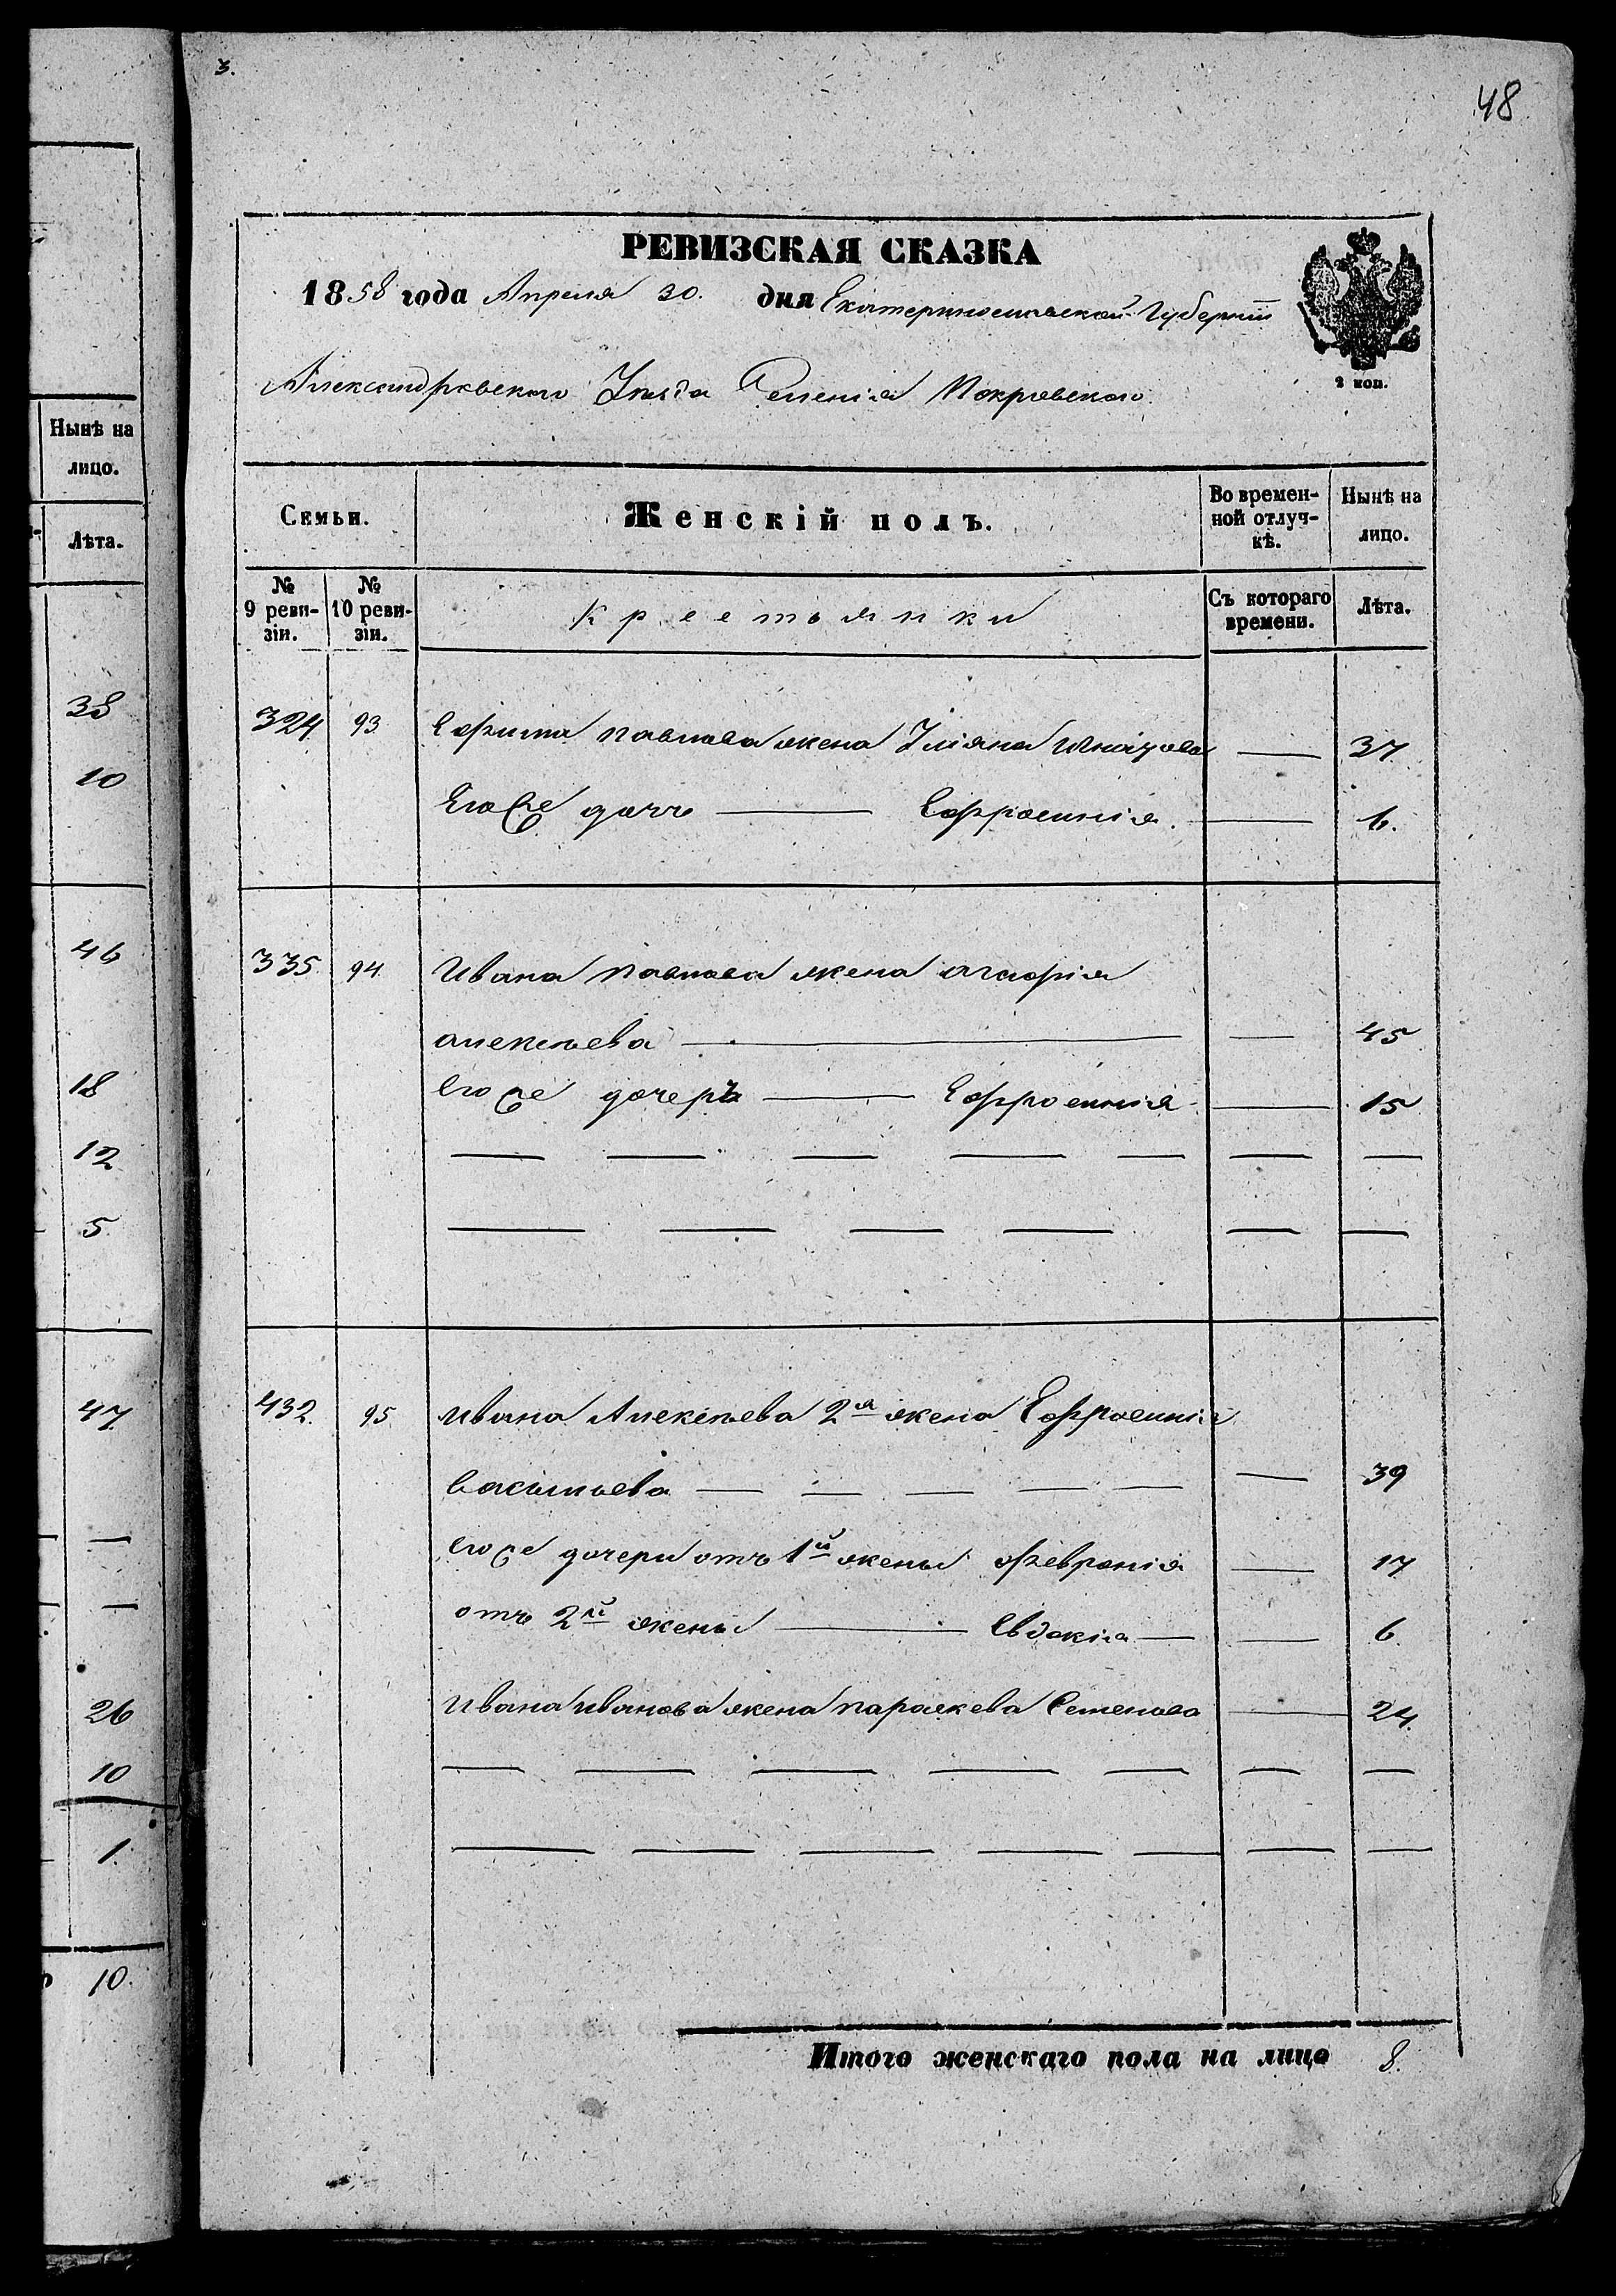 3.
48
РЕВИЗСКАЯ СКАЗКА
1858 года Апреля 30. дня Екатеринославской Губернии
2 коп.
Александровского Уезда Селенія Покровского
Нынѣ на лицо.
Лѣта.
38
10
46
18
12
5
47
26
10
1.
10.
Семьи.
Женскій полъ.
Во времен-
ной отлуч-
кѣ.
Нынѣ на
лицо.
№
9 реви-
зіи.
№
10 реви-
зіи.
Крестьянки
Съ котораго
времени.
Лѣта.
324 93 Ефима Павлова жена Ульяна 37.
Его же дочь Ефросинія. 6.
335 94 Ивана Павлова жена Агафія
Алексѣева 45
Его же дочерь Ефросинія 15
432. 95 Ивана Алексѣева 2я жена Ефросинія
Васильева 39
Его же дочери отъ 1й жены Февронія 17
отъ 2й жены Евдокія 6
Ивана Иванова жена Параскева Семенова 24.
Итого женскаго пола на лицо 8.